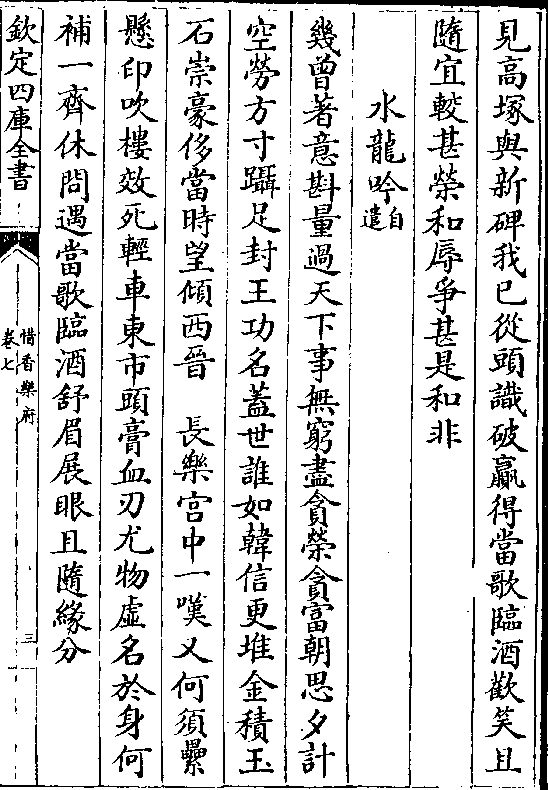 見高塚與新碑我已從頭識破贏得當歌臨酒歡笑且
隨宜較甚榮和辱爭甚是和非
水龍吟自遣
幾曾著意斟量過天下事無窮盡貪榮貪富朝思夕計
空勞方寸躡足封王功名蓋世誰如韓信更堆金積玉
石崇豪侈當時望傾西晉　長樂宮中一嘆又何須纍
懸印吹樓效死輕車東市頭膏血刃尤物虛名於身何
補一齊休問遇當歌臨酒舒眉展眼且隨緣分
欽定四庫全書
惜香樂府
卷七
三